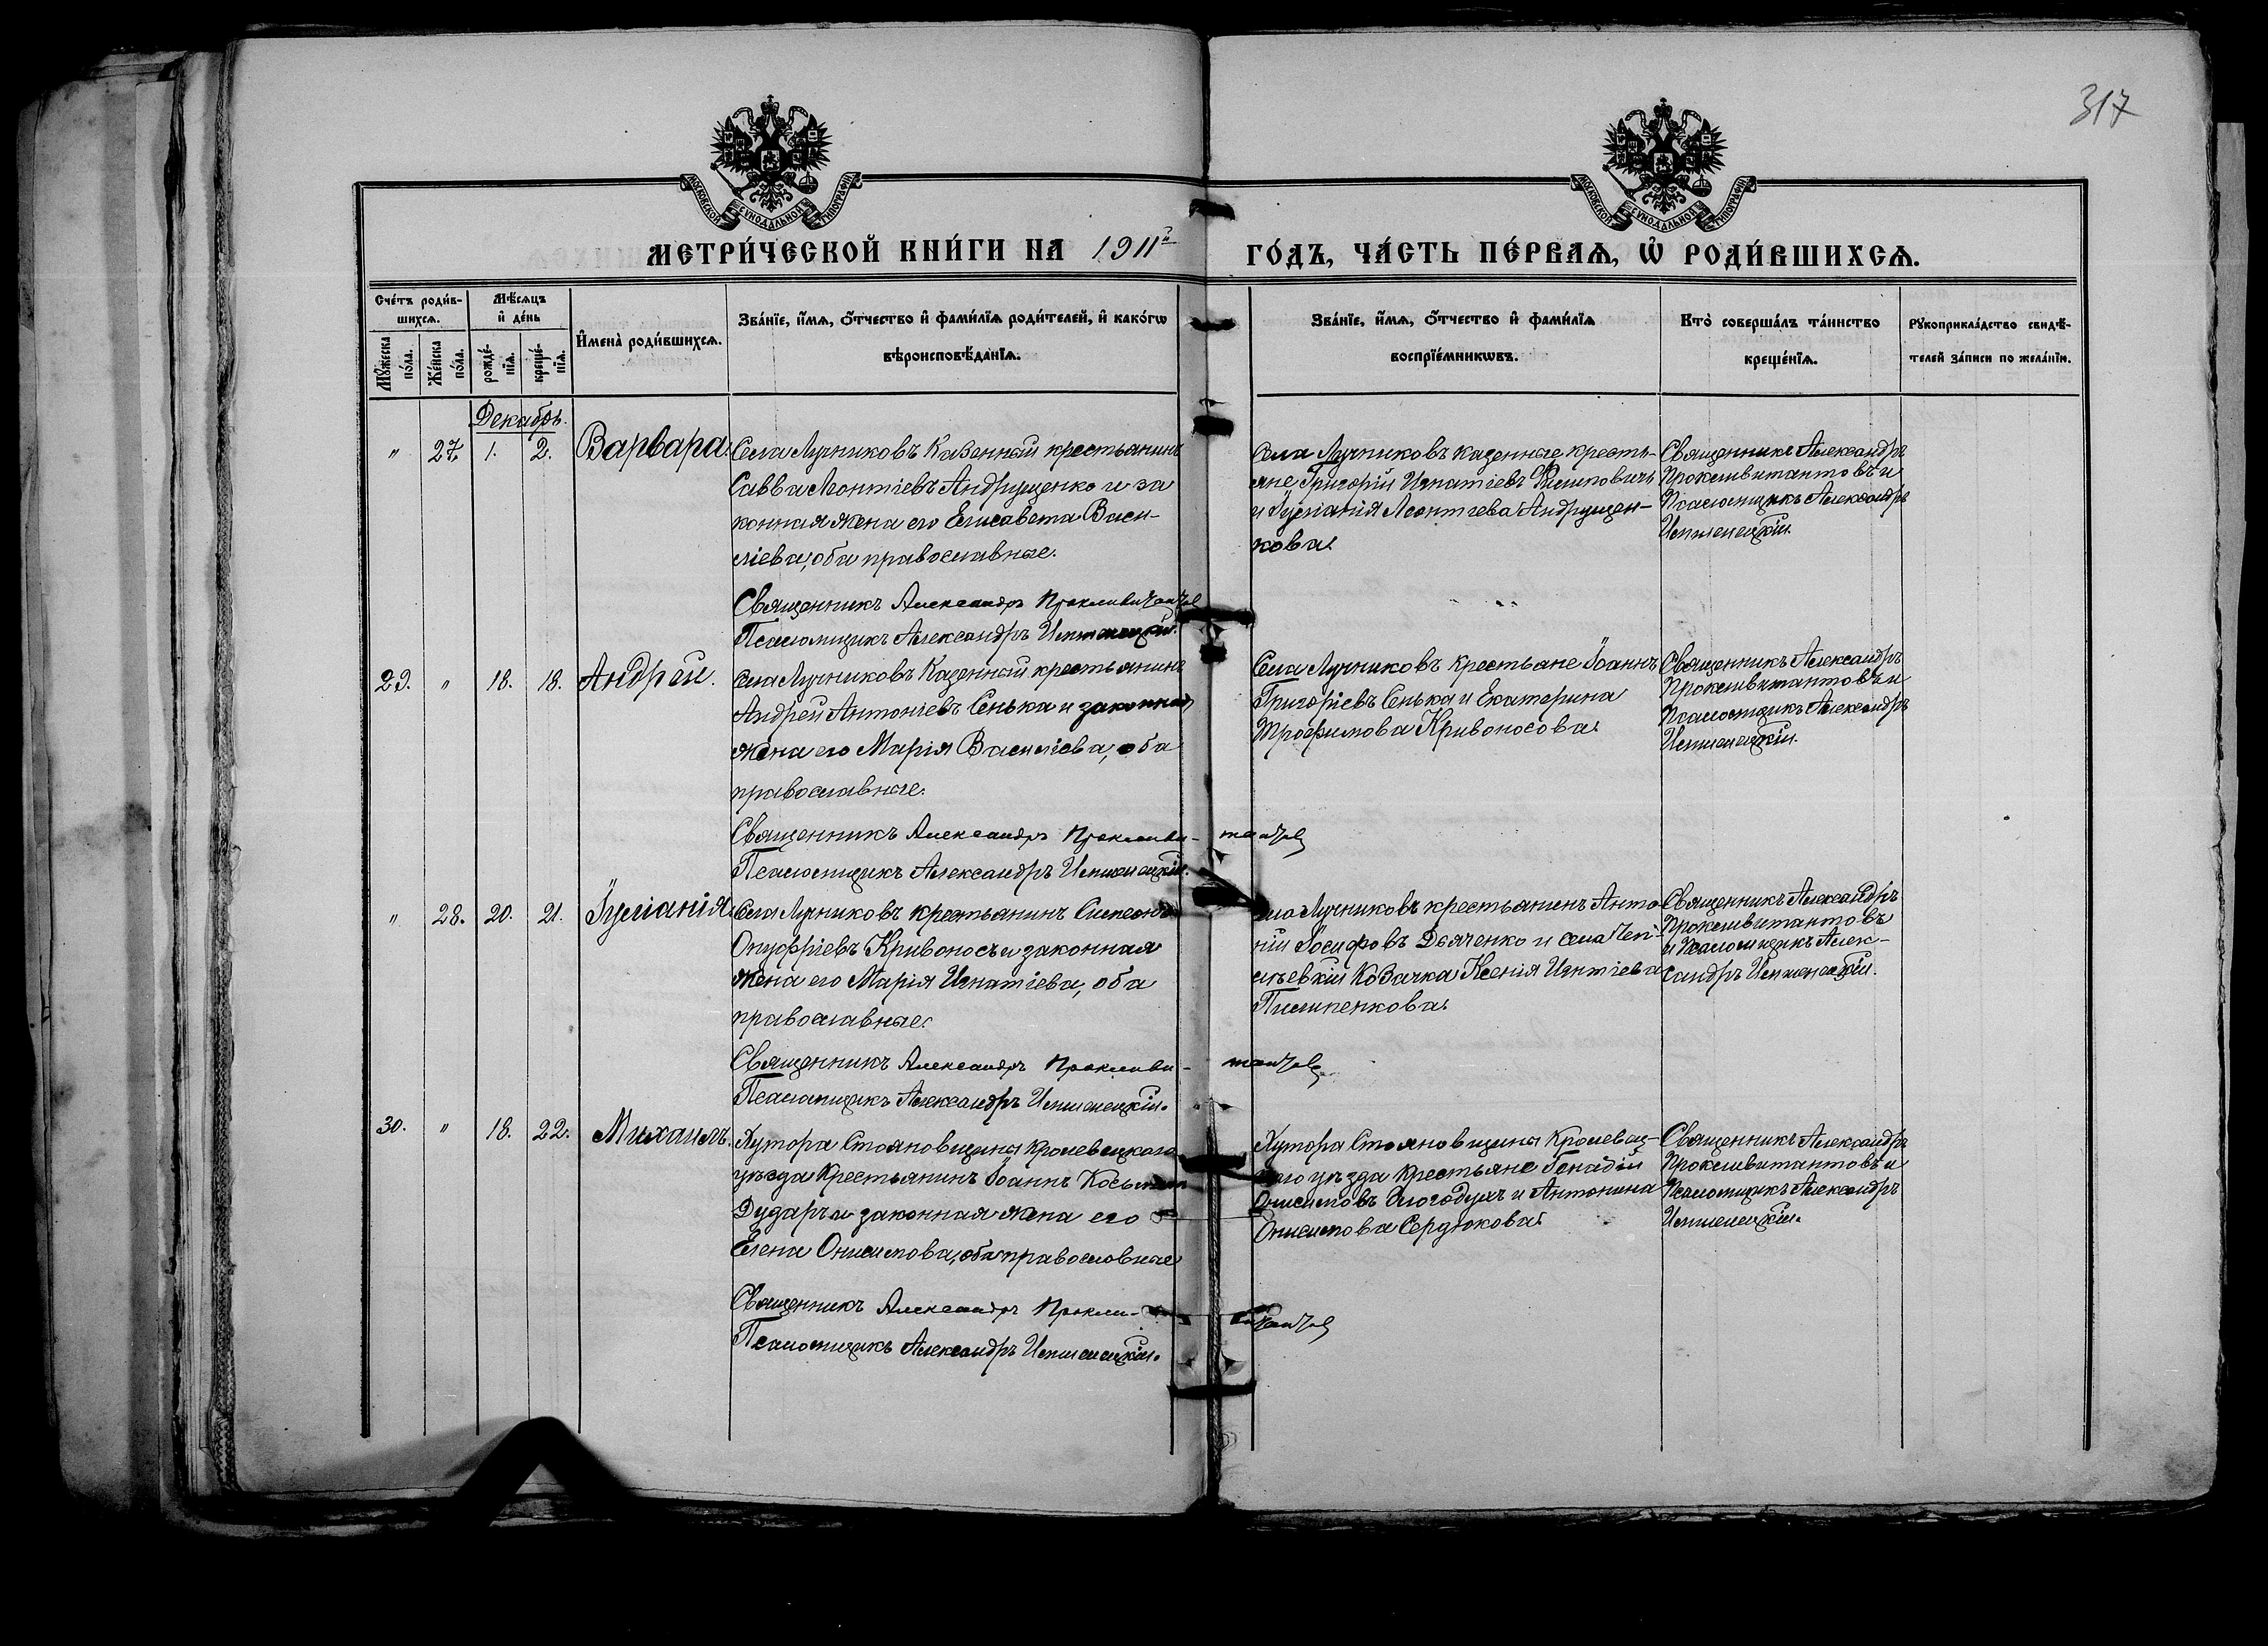 317
МОСКОВСКОЙ СѴНОДАЛЬНОЙ ТИПОГРАФІИ
МОСКОВСКОЙ СѴНОДАЛЬНОЙ ТИПОГРАФІИ
МЕТРИ́ЧЕСКОЙ КНИ́ГИ НА 1911й ГО́ДЪ, ЧА́СТЬ ПЕ́РВАѦ, Ѽ РОДИ́ВШИХСѦ.
Сче́тъ роди́в-
шихсѧ.
Мꙋ́жеска по́ла.
Же́нска по́ла.
Мѣ́сѧцъ
и҆ де́нь
рожде́-
нїѧ.
креще́-
нїѧ.
И҆мена̀ роди́вшихсѧ.
Зва́нїе, и҆́мѧ, ѻ҆́тчество и҆ фами́лїѧ роди́телей, и҆ како́гѡ
вѣроисповѣ́данїѧ.
Зва́нїе, и҆́мѧ, ѻ҆́тчество и҆ фами́лїѧ
воспрїе́мникѡвъ.
Кто̀ соверша́лъ та́инство
креще́нїѧ.
Рꙋкоприкла́дство свидѣ́-
телей за́писи по жела́нїю.
Декабрь.
" 27. 1. 2. Варвара.
Села Лучниковъ Казенный крестьянинъ
Савва Леонтіевъ Андрущенко и за
конная жена его Елисавета Васи-
ліева, оба православные.
Священникъ Александръ
Псаломщикъ Александръ
Села Лучниковъ казенные кресть-
яне Григорій Игнатіевъ Филиповичъ
и Іуліанія Леонтіева Андрущен-
кова.
Священникъ Александръ
и
Псаломщикъ Александръ
29. " 18. 18. Андрей.
Села Лучниковъ Казенный крестьянинъ
Андрей Антоніевъ Сенька и законная
жена его Марія Василіева, оба
православные.
Священникъ Александръ
Псаломщикъ Александръ
Села Лучниковъ крестьяне Іоаннъ
Григоріевъ Сенька и Екатерина
Трофимова Кривоносова.
Священникъ Александръ
и
Псаломщикъ Александръ
" 28. 20. 21. Іуліанія.
Села Лучниковъ крестьянинъ Симеонъ
Онуфріевъ Кривоносъ и законная
жена его Марія Игнатіева, оба
православные.
Священникъ Александръ
Псаломщикъ Александръ
Села Лучниковъ крестьянинъ Анто-
ній Іосифовъ Дяченко и села
Козачка Ксенія
Пилипенкова.
Священникъ Александръ
и Псаломщикъ Алек-
сандръ
30. " 18. 22. Михаилъ.
Хутора Стояновщина Кролевецкаго
уѣзда Крестьянинъ Іоаннъ Косьминъ
Дударь и законная жена его
Елена Онисимова, оба православные
Священникъ Александръ
Псаломщикъ Александръ
Хутора Стояновщина Кролевец-
каго уѣзда крестьяне Генадій
Онисимовъ и Антонина
Онисимова Сердюкова.
Священникъ Александръ
и
Псаломщикъ Александръ